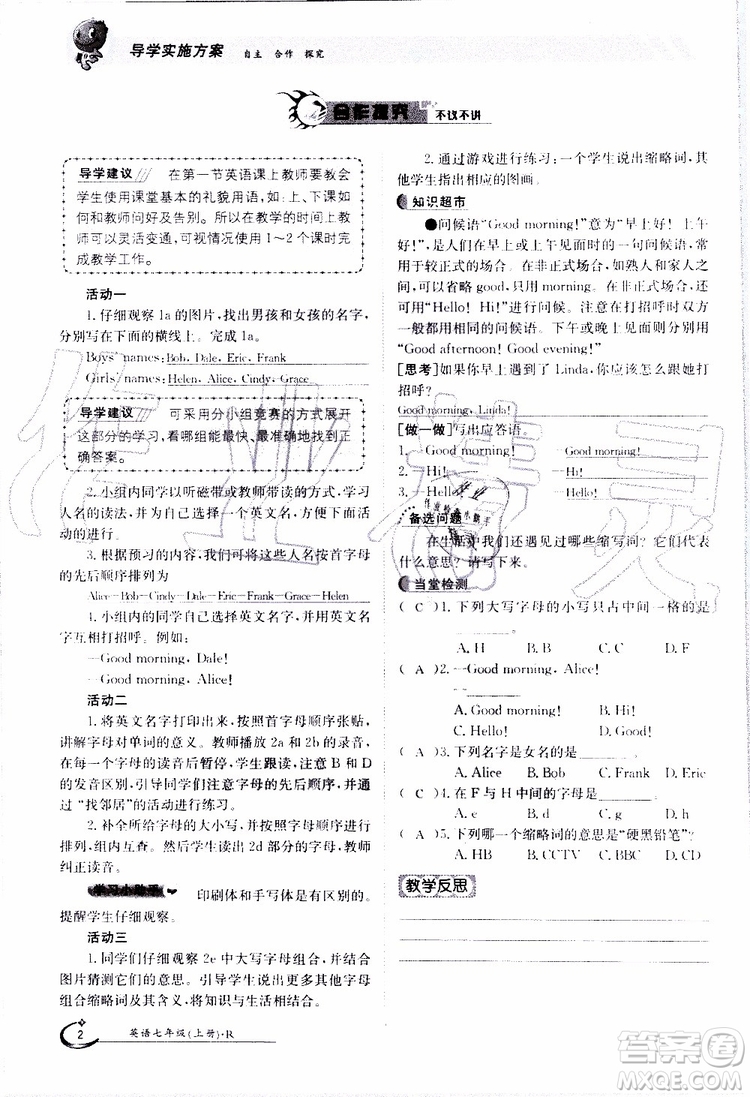 导学实施方案 自主 合作 探究
合作探究 不议不讲
导学建议 在第一节英语课上教师要教会
学生使用课堂基本的礼貌用语,如:上、下课如
何和教师问好及告别。所以在教学的时间上教
师可以灵活变通,可视情况用1~2个课时完
成教学工作。
活动一
1.仔细观察1a的图片,找出男孩和女孩的名字,
分别写在下面的横线上。完成1a。
Boys' names: Bob, Dale, Eric, Frank
Girls' names: Helen, Alice, Cindy, Grace
导学建议 可采用分小组竞赛的方式展开
这部分的学习,看哪组能最快、最准确地找到正
确答案。
2.小组内同学以听磁带或教师带读的方式,学习
人名的读法,并为自己选择一个英文名,以便活
动的进行。
3.根据预习的内容,请将这些人名按首字母
的先后顺序排列为
Alice—Bob—Cindy—Dale—Eric—Frank—Grace—Helen
4.小组内同学给自己选择英文名,并用英文名
字互相打招呼。例如:
—Good morning, Dale!
—Good morning, Alice!
活动二
1.将英文名字打印出来,按照首字母顺序张贴,
讲解字母对单词的意义。教师播放2a和2b的录音,
在每个字母的读音后暂停,引导学生读出来,注意D和B
的发音区别,引导同学们注意字母的先后顺序,并通
过“找邻居”的活动进行练习。
2.补全所给字母的大小写,并按照先后顺序进行
排列,组内互查。然后学生读出2d部分的字母,教师
纠正读音。
学习小助手 印刷体和手写体是有区别的。
提醒学生仔细观察。
活动三
1.同学们仔细观察2e中大写字母组合,并结合
图片猜测它们的意思。引导学生发现其他大写字母
组合缩略词及其意思,将知识与生活相结合。
2 英语七年级(上册)·R
2.通过游戏进行练习:一个学生说出缩略词,其
他学生指出相应的图画。
知识超市
●问候语“Good morning!”意为“早上好!上午
好!”,是人们在早上或上午见面时的一句问候语,
用于较正式的场合。在非正式场合,如熟人和家人
间,可以省略good只用morning。在非正式场合,
可以用“Hello! Hi!”进行问候。注意在打招呼时双方
一般都用相同的问候语。下午或晚上见面时用
“Good afternoon! Good evening!”
[思考]如果你早上遇到了Linda,你应该怎么跟她打
招呼?
Good morning, Linda!
[做一做]写出应答语。
1.—Good morning! —Good morning!
2.—Hi! —Hi!
3.—Hello! —Hello!
备选问题
在生活中我们还遇见过哪些缩写词?它们表示
什么意思?请写下来。
当堂检测
( C )1.下列大写字母的小写只占中间一格的是
A. H B. B C. A D. F
( A )2.—Good morning, Alice!
—
A. Good morning! B. Hi!
C. Hello! D. Good!
( A )3.下列名字是女名的是
A. Alice B. Bob C. Frank D. Eric
( C )4.在F与H中间的字母是
A. e B. f C. g D. d
( A )5.下列哪一个缩略词的意思是“硬黑铅笔”?
A. HB B. CCTV C. BBC D. CD
教学反思
答案圈
MXQE.COM